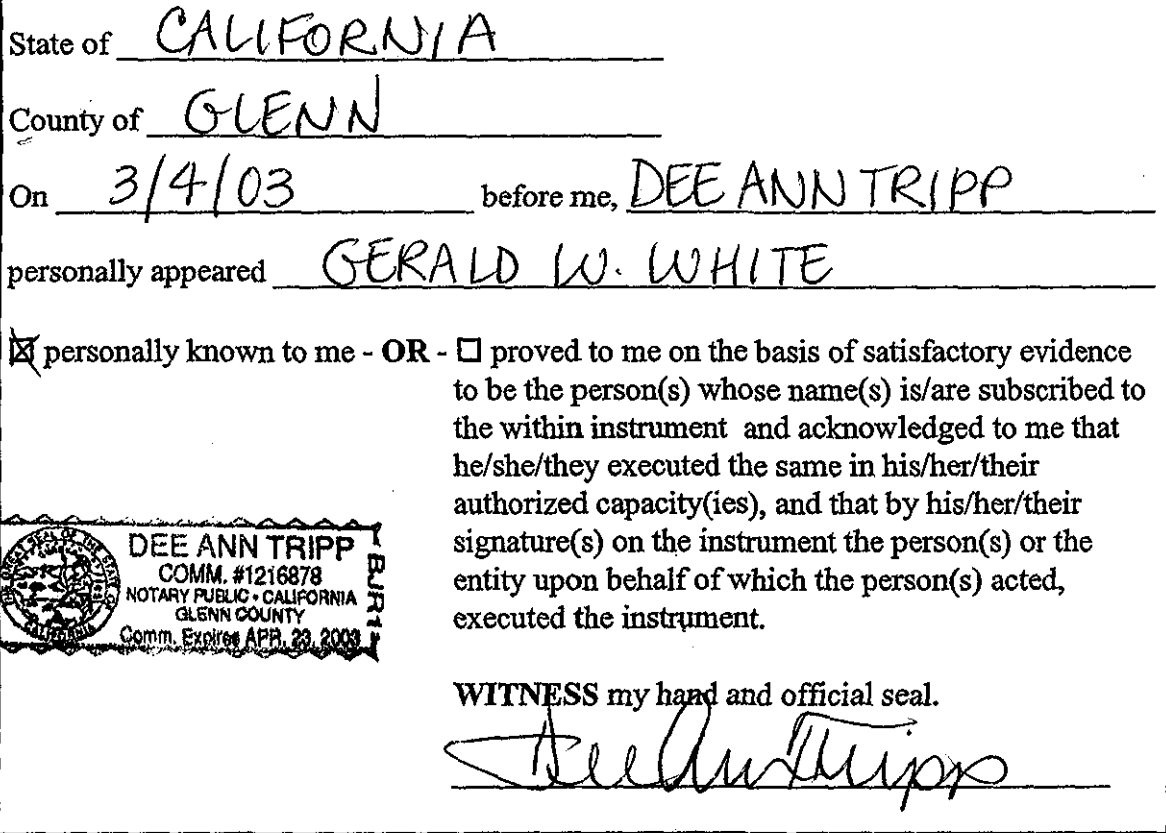 State of CALIFORNIA
County of GLENN
On 3/4/03 before me, DEE ANN TRIPP
personally appeared GERALD W. WHITE
☒ personally known to me - OR - ☐ proved to me on the basis of satisfactory evidence
to be the person(s) whose name(s) is/are subscribed to
the within instrument and acknowledged to me that
he/she/they executed the same in his/her/their
authorized capacity(ies), and that by his/her/their
signature(s) on the instrument the person(s) or the
entity upon behalf of which the person(s) acted,
executed the instrument.
DEE ANN TRIPP
COMM. #1216878
NOTARY PUBLIC • CALIFORNIA
GLENN COUNTY
Comm. Expires APR. 23, 2003
BJR1
WITNESS my hand and official seal.
Dee Ann Tripp